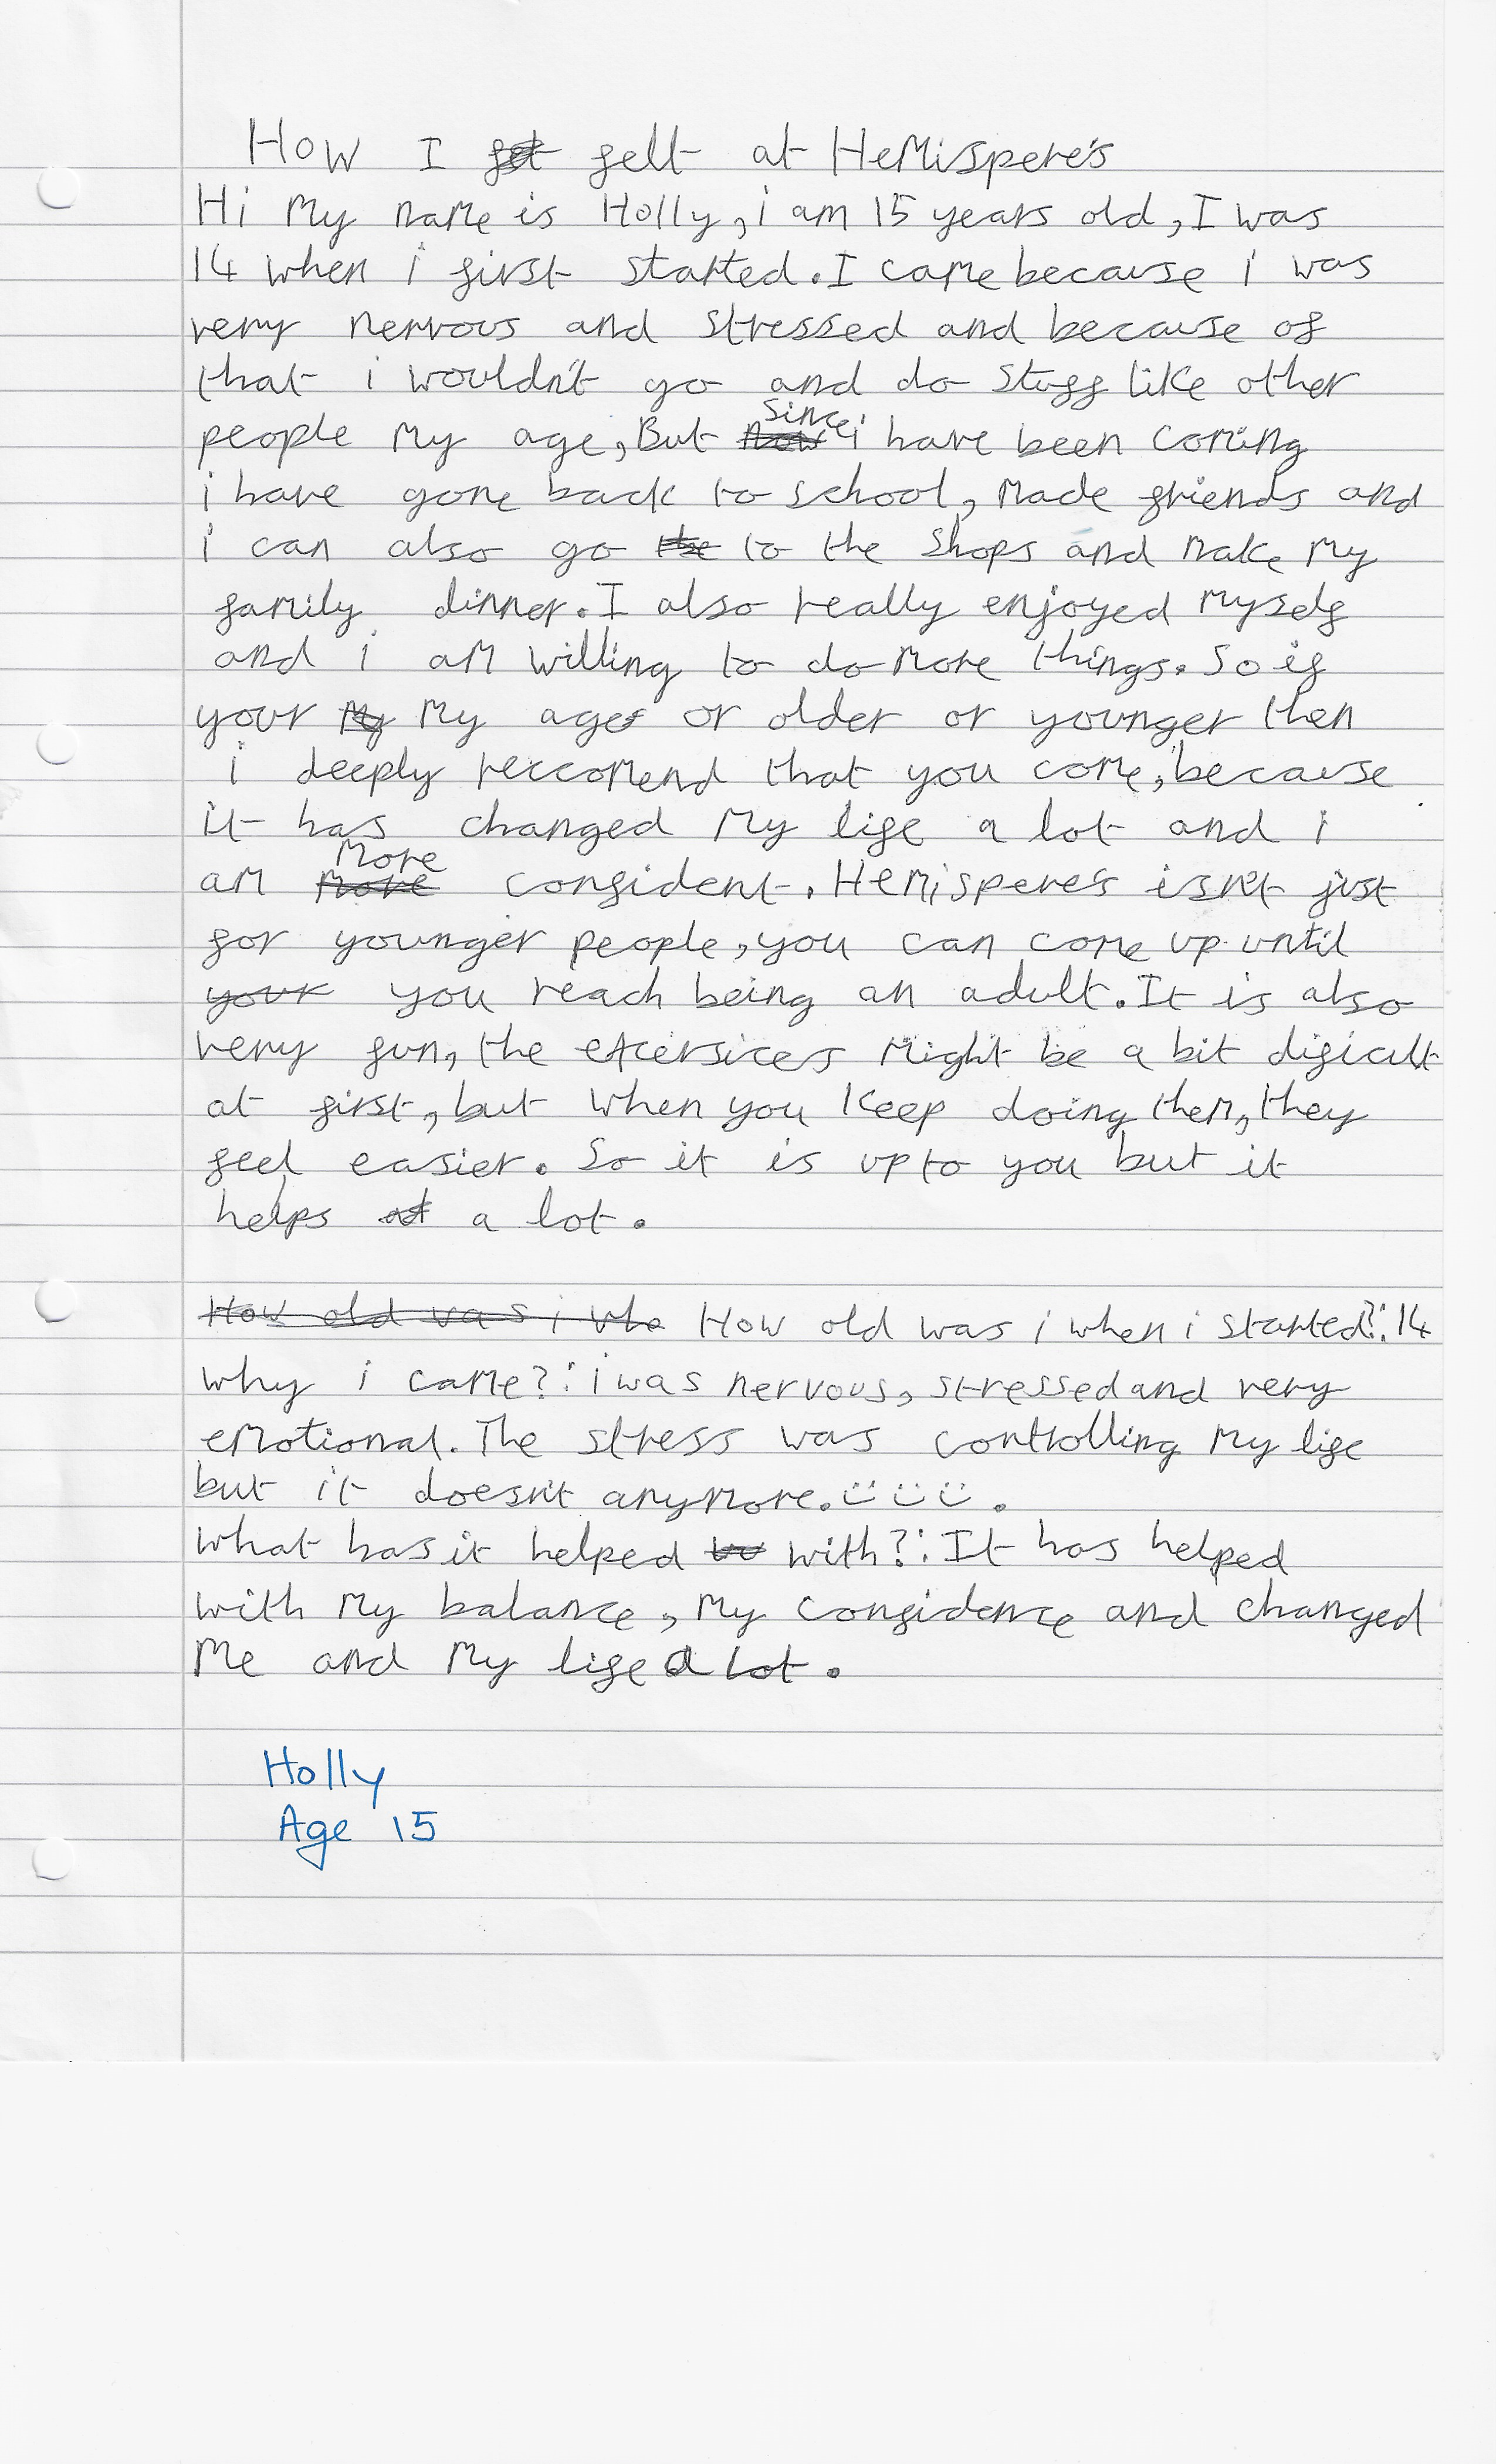 How I felt at HeMispere's
Hi My name is Holly, i am 15 years old, I was
14 when i first started. I came because i was
very nervous and stressed and because of
that i wouldn't go and do stuff like other
people My age, But since i have been coming
i have gone back to school, Made friends and
i can also go to the shops and make My
family dinner. I also really enjoyed Myself
and i am willing to do More things. So if
your My age or older or younger then
i deeply reccomend that you come, because
it has changed My life a lot and i
am More confident. Hemispere's isn't just
for younger people, you can come up until
you reach being an adult. It is also
very fun, the excersices Might be a bit dificult
at first, but when you keep doing them, they
feel easier. So it is up to you but it
helps a lot.
How old was i when i started?: 14
why i came?: i was nervous, stressed and very
emotional. The stress was controlling My life
but it doesn't anymore. :) :) :) .
what has it helped with?: It has helped
with My balance, My confidence and changed
Me and My life a lot.
Holly
Age 15